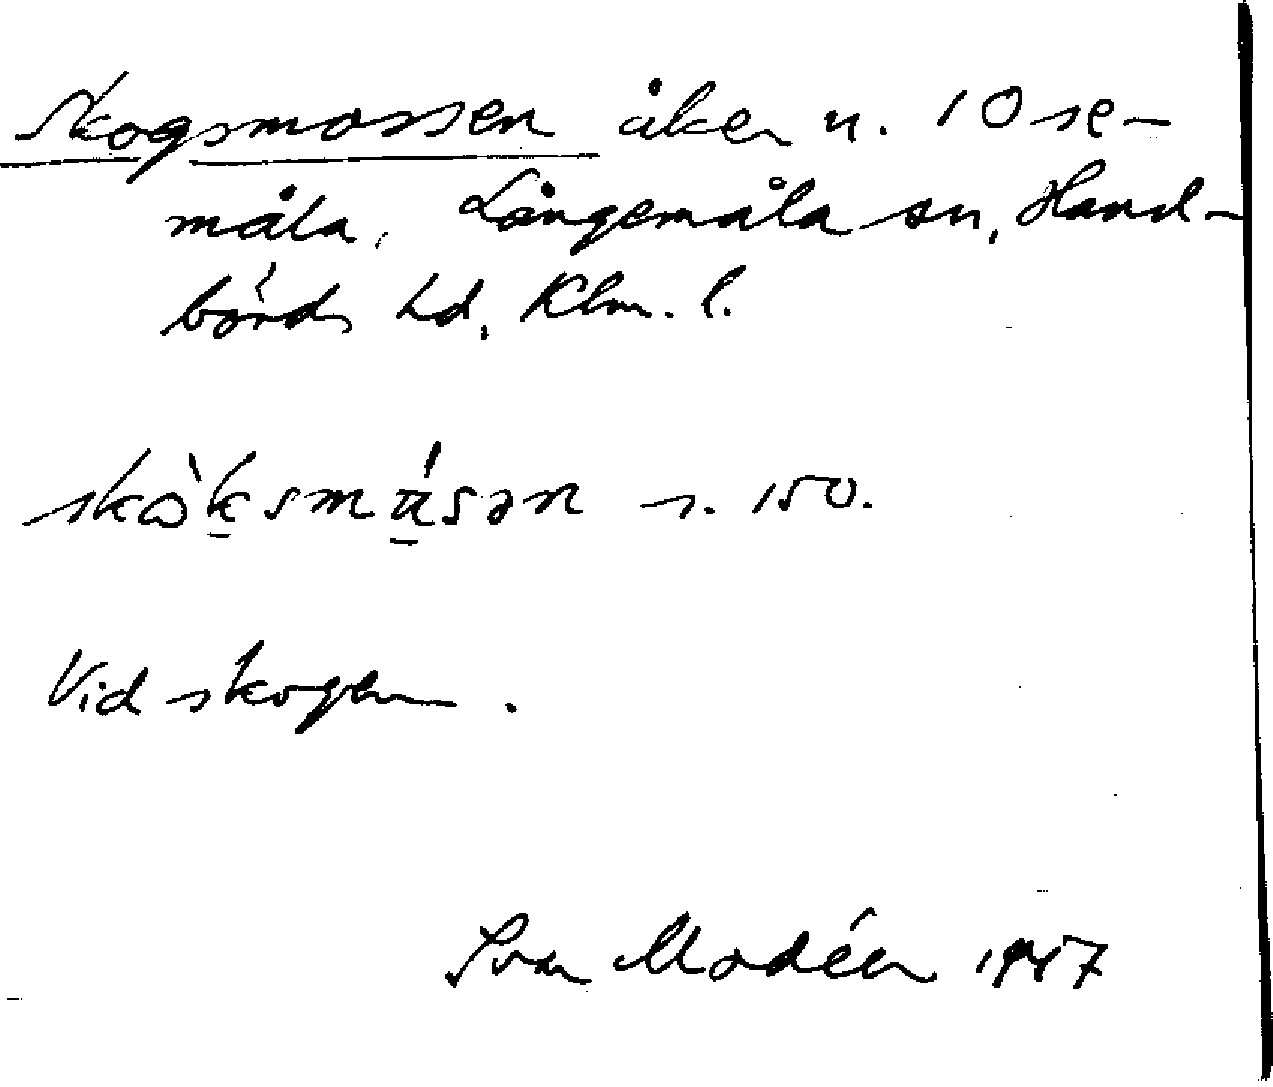 Skogsmossen åker u. 10 se-
måla, Långemåla sn, Hand-
börds hd, Klm. l.
skò̱ksmúsən s. 150.
Vid skogen.
Ivar Modéer 1947